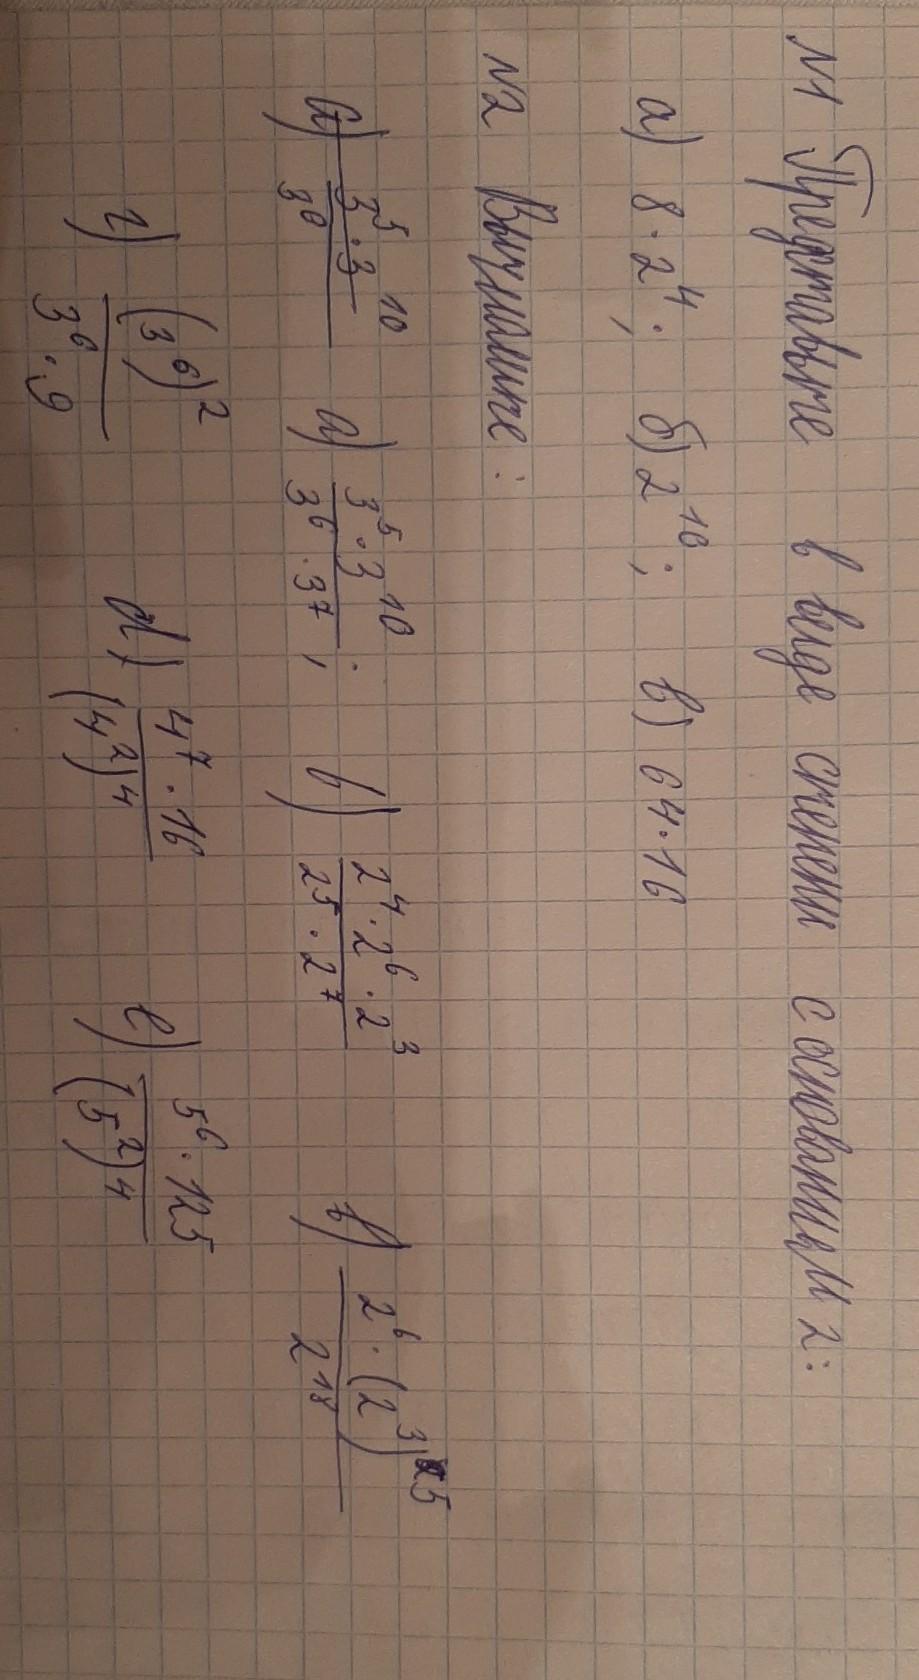 N1 Представьте в виде степени с основанием 2:
а) 8·2⁴; б) 2¹⁰; в) 64·16
N2 Вычислите:
а) (3⁵·3¹⁰)/(3⁶·3⁷); б) (2⁴·2⁶·2³)/(2⁵·2⁷) в) (2⁶·(2³)⁵)/2¹⁸
г) (3⁶)²/(3⁶·9) д) (4⁷·16)/(4²)⁴ е) (5⁶·125)/(5²)⁴